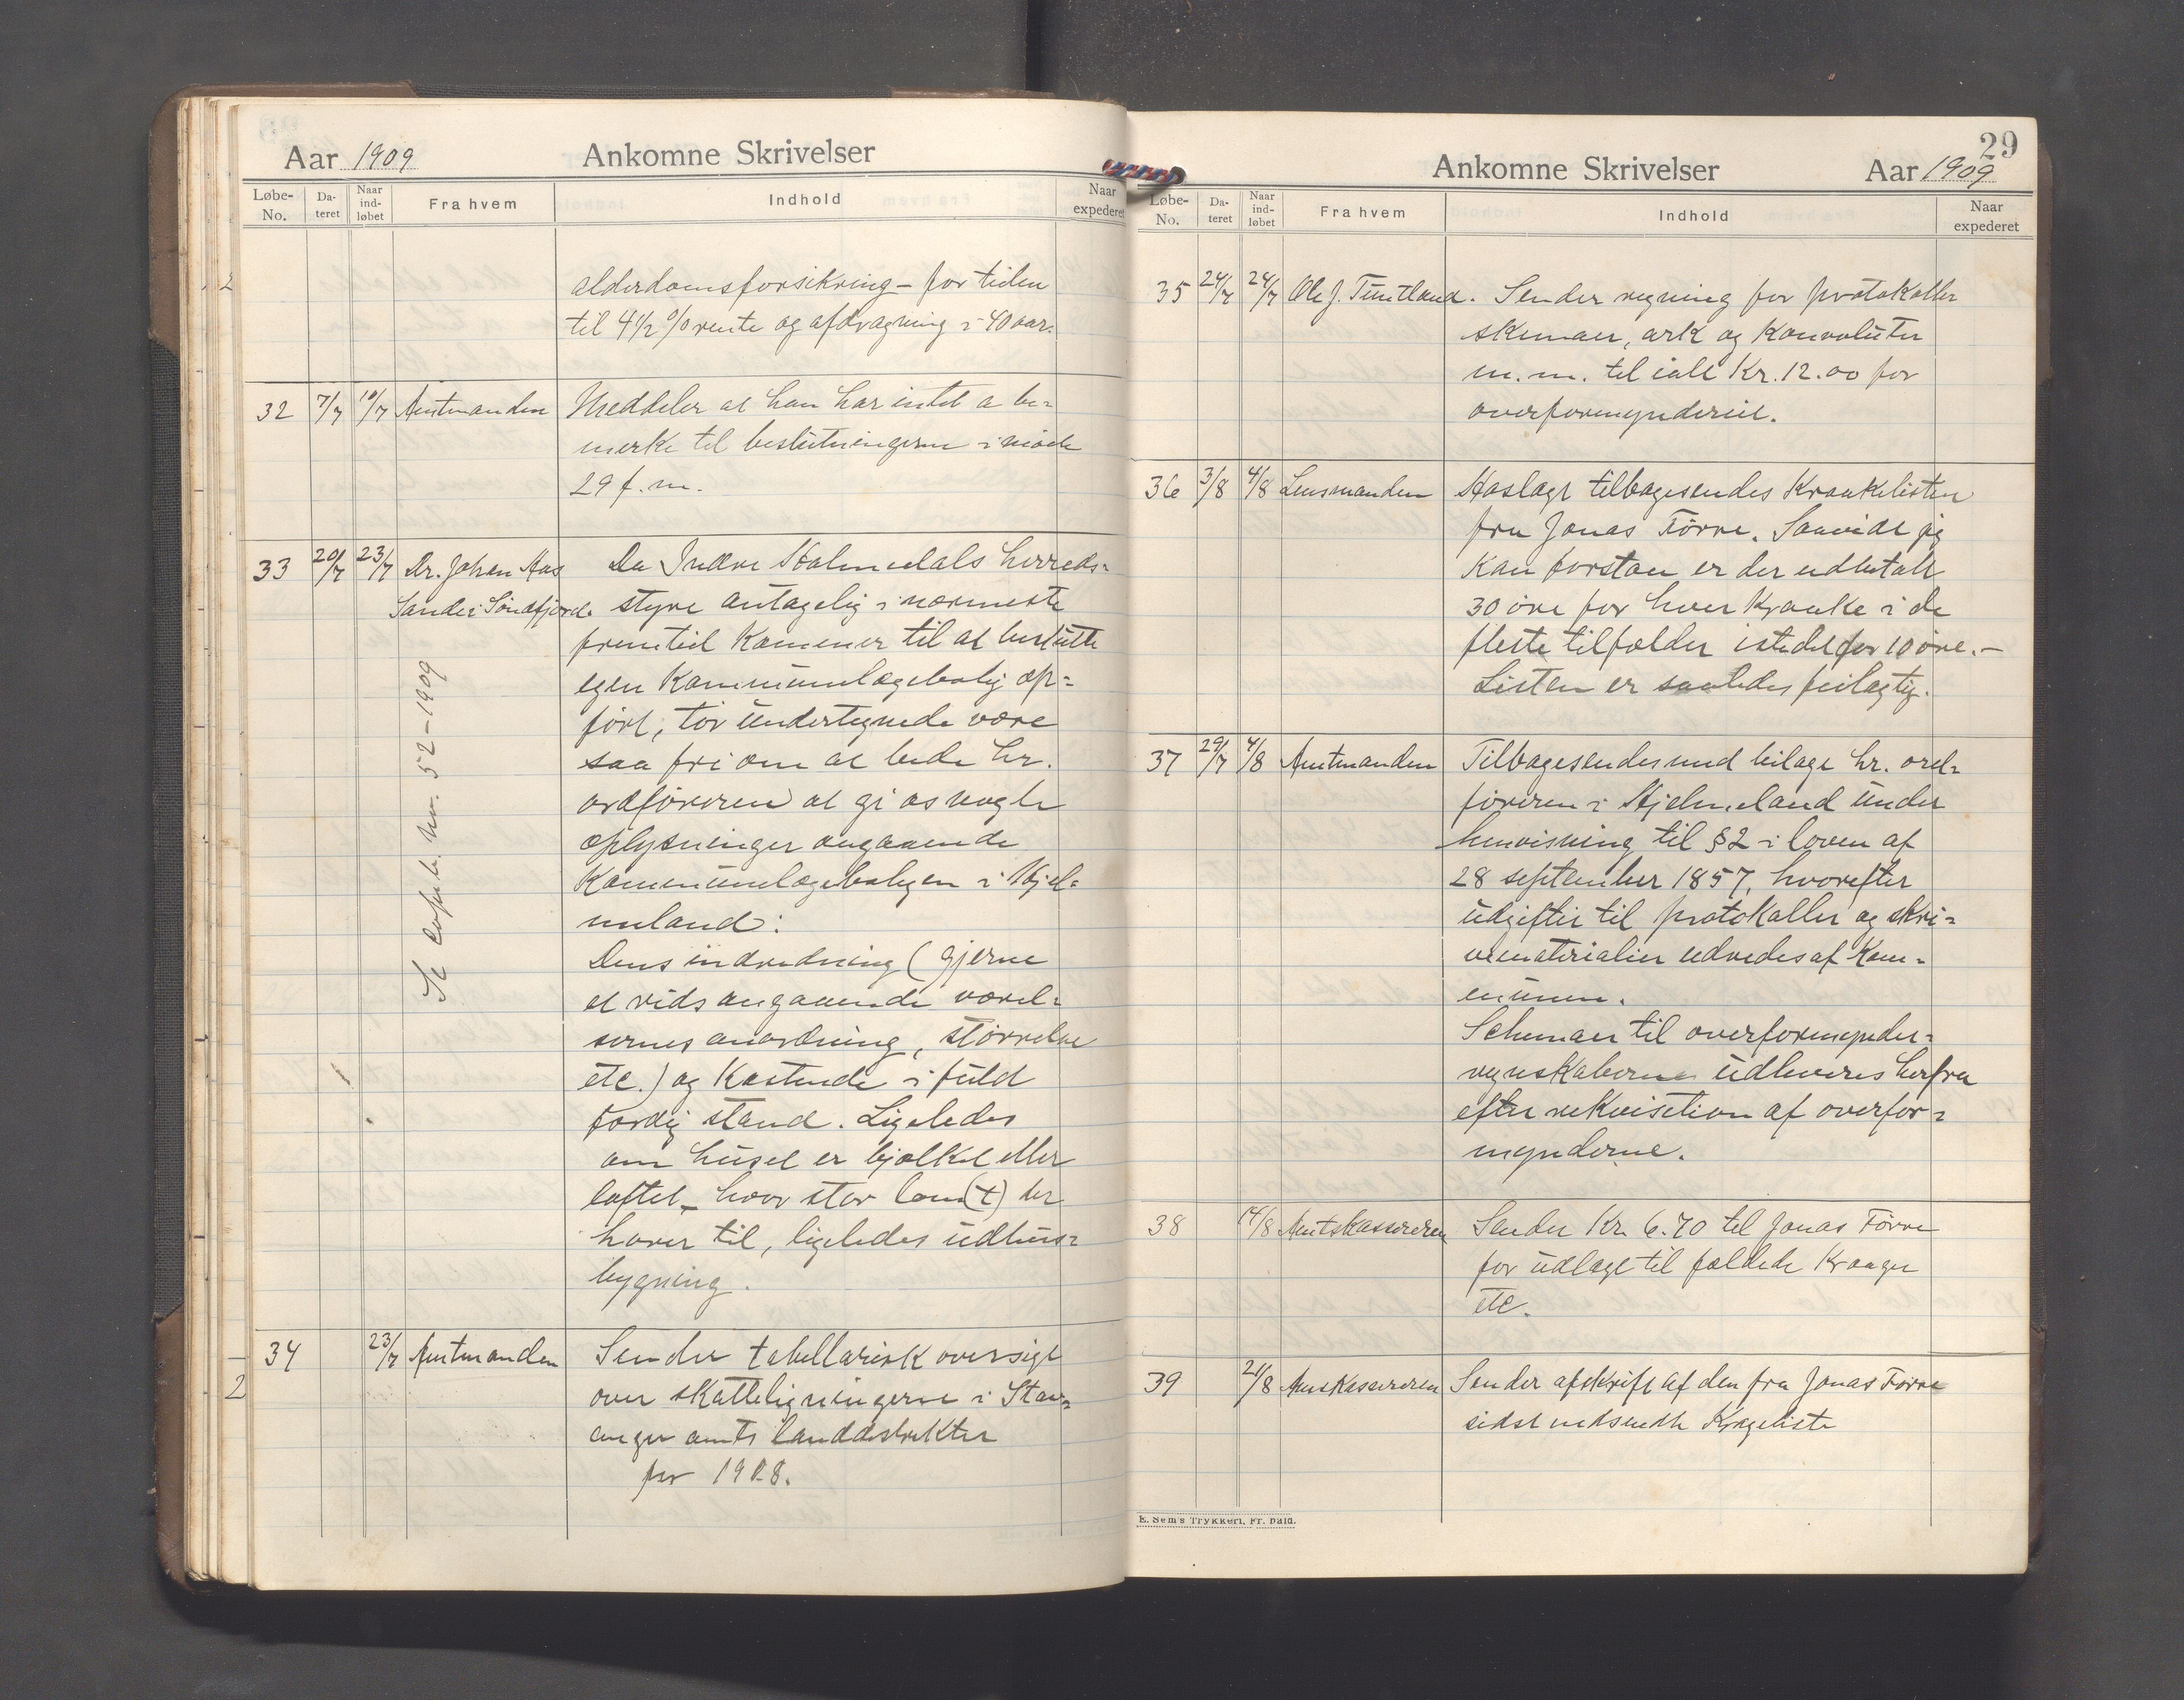 Aar 1909 Ankomne Skrivelser
Løbe-No. Dateret Naar indløbet Fra hvem Indhold Naar expederet
alderdomsforsikring - for tiden
til 4 1/2 % rente og afdragning i 40 aar.
32 7/7 10/7 Amtmanden Meddeler at han har intet a be=
merke til beslutningerne i møde
29 f. m.
33 20/7 23/7 Dr. Johan Aas Da Indre Holmedals herreds=
Sande i Søndfjord. styre antagelig i nærmeste
fremtid kommer til at beslutte
egen kommunelægebolig op=
ført, tør undertegnede være
saa fri om at bede hr.
ordføreren at gi os nogle
oplysninger angaaende
kommunelægeboligen i Hjel=
meland:
Dens indredning (gjerne
et rids angaaende værel=
sernes anordning, størrelse
etc.) og kostende i fuld
færdig stand. Ligeledes
om huset er bjælket eller
loftet - hvor stor tom(t) der
hører til, ligeledes udhus=
bygning.
Se kopib. nr. 52-1909
34 23/7 Amtmanden Sender tabellarisk oversigt
over skatteligningerne i Stav=
anger amts landdistrikter
for 1908.
29
Ankomne Skrivelser Aar 1909
Løbe-No. Dateret Naar indløbet Fra hvem Indhold Naar expederet
35 24/7 24/7 Ole J. Tuntland. Sender regning for protokoller
skemaer, ark og konvoluter
m.m. til ialt Kr. 12.00 for
overformynderiet.
36 3/8 4/8 Lensmanden Hoslagt tilbagesendes Kraakelisten
fra Jonas Førre. Saavidt jeg
kan forstaa er der udbetalt
30 øre for hver Kraake i de
fleste tilfælder istedet for 10 øre. -
Listen er saaledes feilagtig.
37 29/7 4/8 Amtmanden Tilbagesendes med bilage hr. ord=
føreren i Hjelmeland under
henvisning til § 2 i loven af
28 september 1857, hvorefter
udgifter til protokoller og skri=
vematerialier udredes af Kom=
munen.
Schemaer til overformynder=
regnskaberne udleveres herfra
efter rekvisition af overfor=
mynderne.
38 14/8 Amtskassereren Sender Kr. 6.70 til Jonas Førre
for udlagt til fældede Kraager
etc.
39 21/8 Amskassereren Sender afskrift af den fra Jonas Førre
sidst nedsendte Krageliste
E. Sem's Trykkeri, Fr. hald.